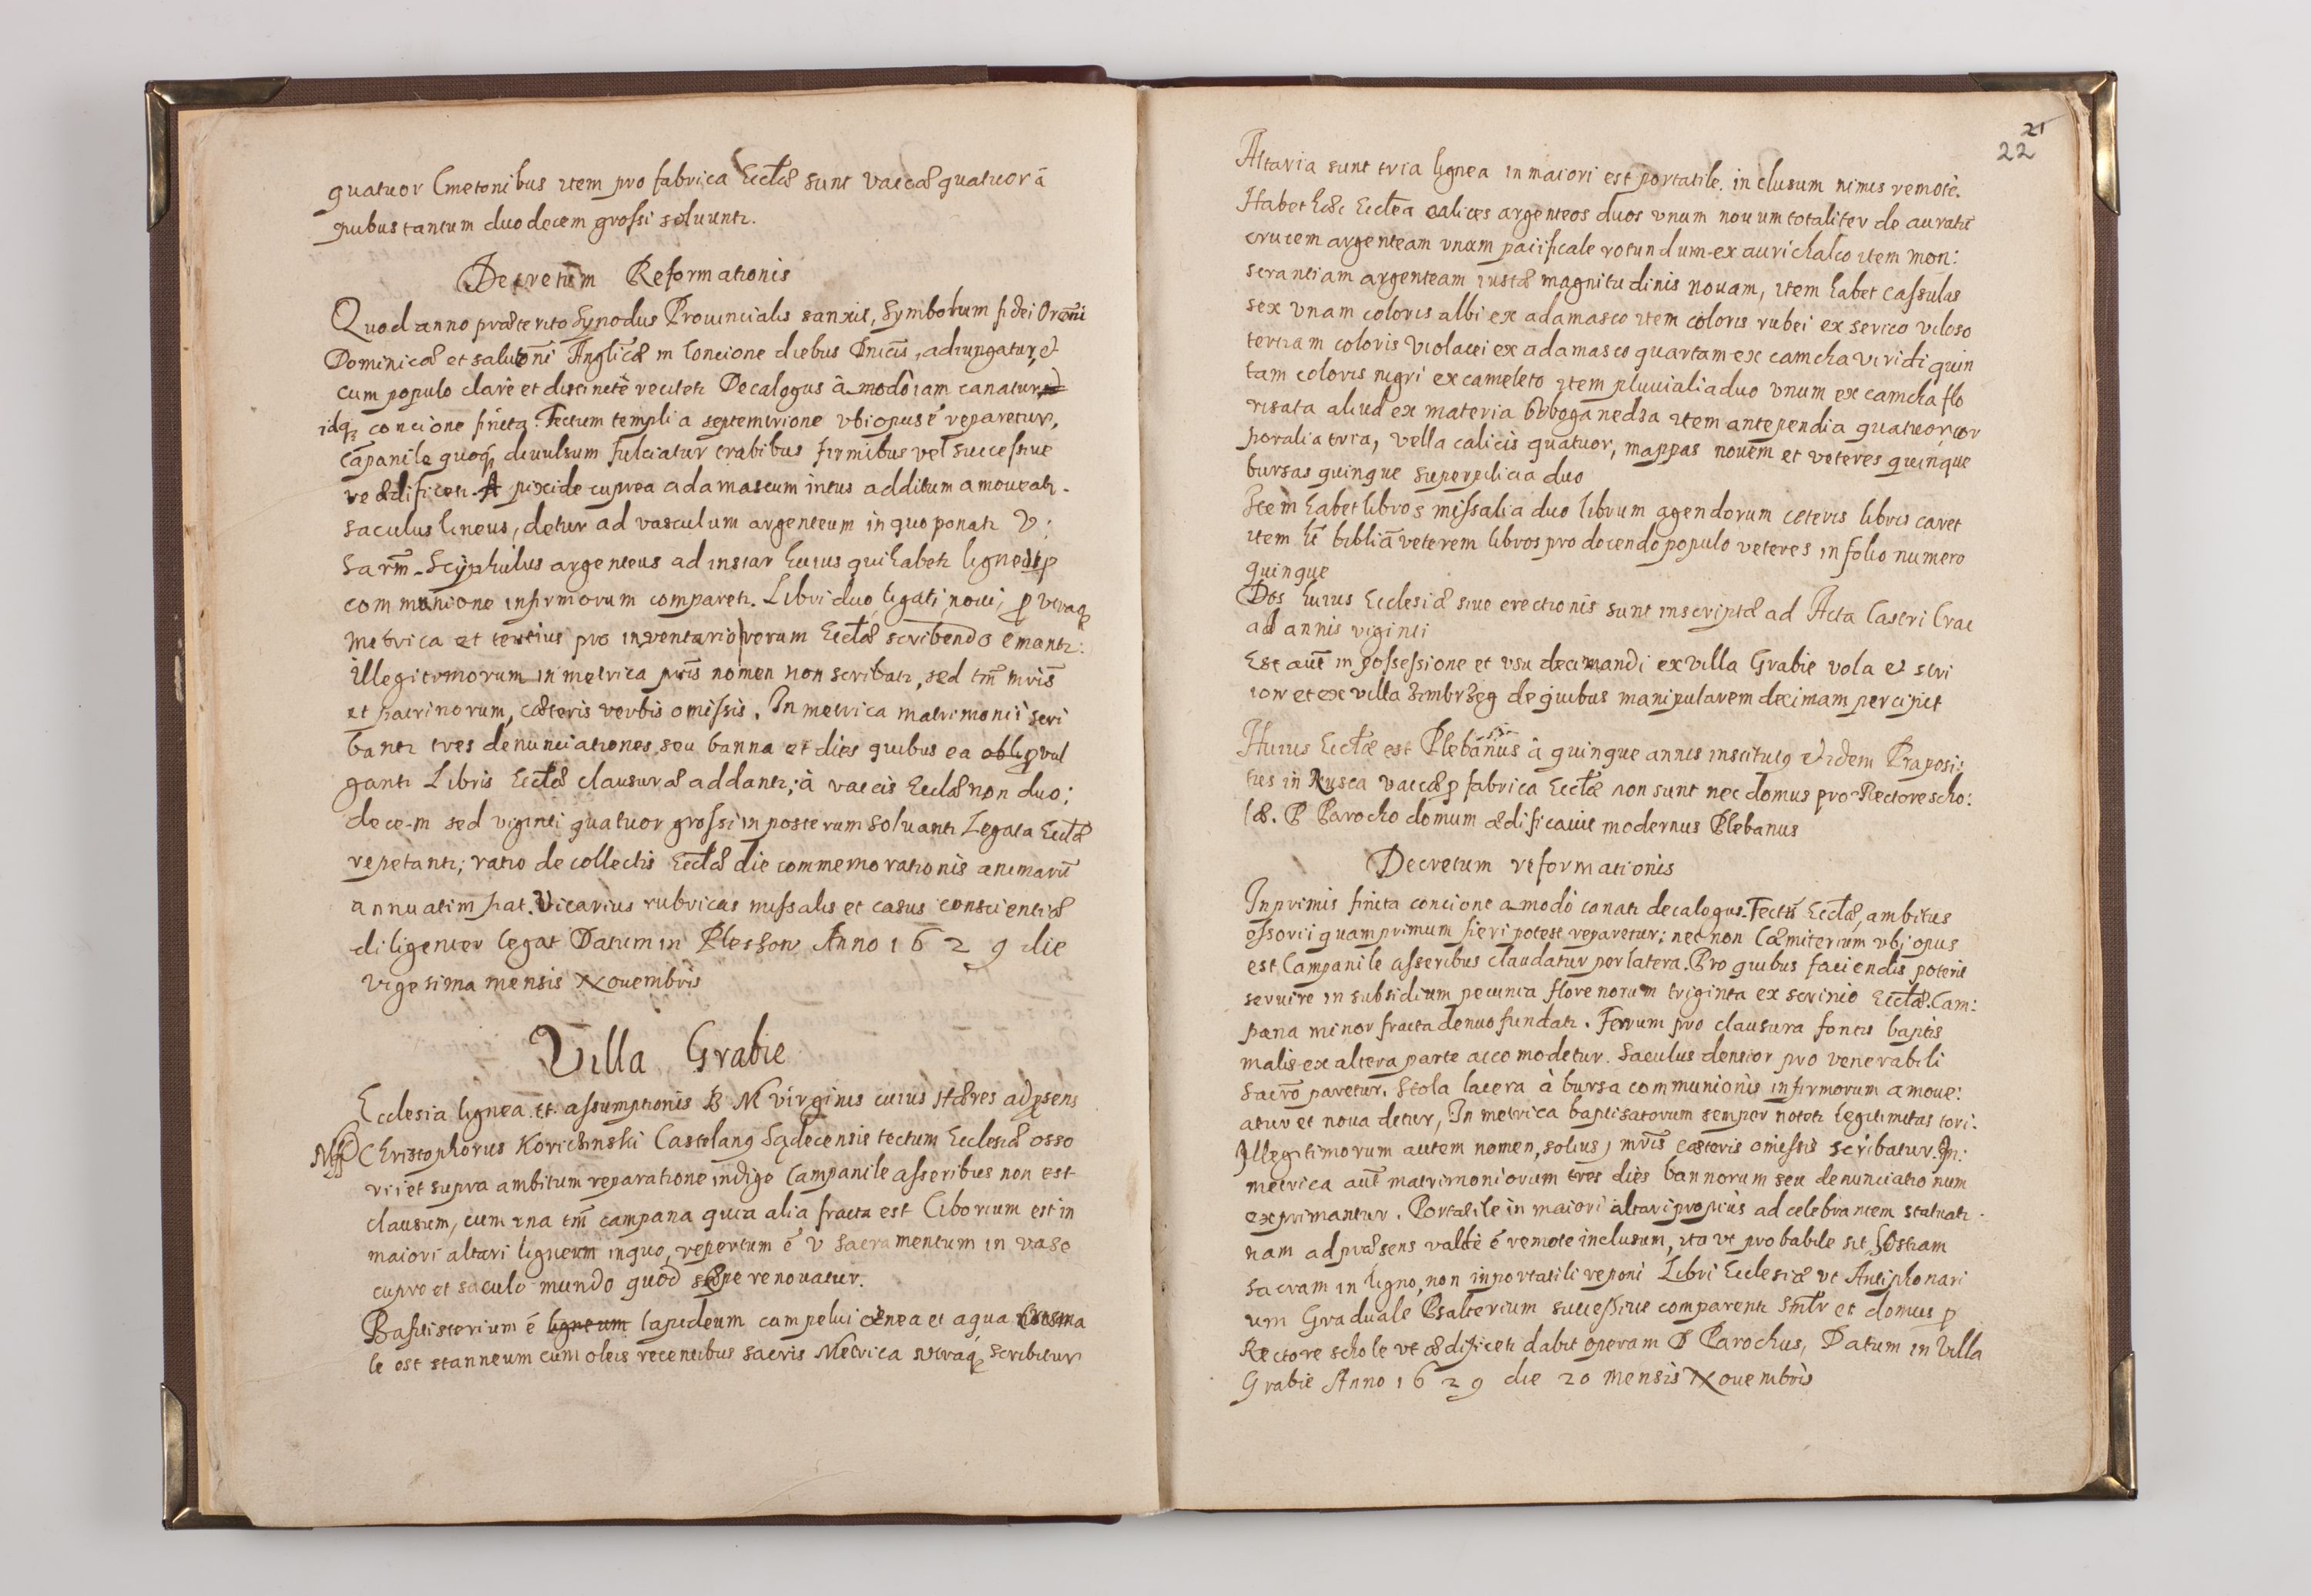 quatuor Cmetonibus item pro fabrica Eccłæ sunt vaccæ quatuor ā
quibus tantum duodecem grossi soluuntr.
Decretum Reformationis
Quod anno præterito Synodus Prouincialis sanxit, Symbolum fidei Orōni
Dominicæ et salutōni Anglicæ in Concione diebus Dnicis, adiungatur, et
cum populo clarè et distinctè recitetr Decalogus â modò iam canatur
idq; concione finita. Tectum templi a septemtrione vbi opus ē reparetur,
Cāpanile quoq; diuulsum fulciatur trabibus firmibus vel successiue
reædificetr A pixide cuprea adamascum intus additum amoueatr.
saculus lineus, detur ad vasculum argenteum in quo ponatr V:
Sarm̄. Scyphulus argenteus ad instar huius qui habetr ligneus p
communione infirmorum comparetr. Libri duo ligati noui, p vtraq;
metrica et tertius pro inventario rerum Eccłæ scribendo emantr:
illegitimorum in metrica pris nomen non scribatr, sed tm̄ mris
et patrinorum, cæteris verbis omissis. In metrica matrimonii scri
bantr tres denunciationes seu banna et dies quibus ea pvul
gantr Libris Eccłæ clausuræ addantr; à vaccis Eccłæ non duo:
decem sed viginti quatuor grossi in posterum soluantr Legata Eccłæ
repetantr; ratio de collectis Eccłæ die commemorationis animarū
annuatim fiat. Vicarius rubricas missalis et casus conscientiæ
diligenter legat Datum in Pleszow Anno 1629 die
vigesima mensis Nouembris
Villa Grabie
Ecclesia lignea tt. assumptionis B M virginis cuius Hæres ad psens
Mff D Christophorus Koricinski Castelang Sądecensis tectum Ecclesiæ osso
rii et supra ambitum reparatione indiget Campanile asseribus non est
clausum, cum vna tm̄ campana quia alia fracta est Ciborium est in
maiori altari ligneum in quo, repertum ē V Sacramentum in vase
cupro et saculo mundo quod sæpe renouatur.
Baptisterium ē ligneum lapideum cum pelui ænea et aqua Crisma
le est stanneum cum oleis recentibus sacris Metrica vtraq; scribitur
21
22
Altaria sunt tria lignea in maiori est portatile. inclusum nimis remotè.
Habet hæc Eccłea calices argenteos duos vnum nouum totaliter de auratū
crucem argenteam vnam pacificale rotundum ex aurichalco item mon:
strantiam argenteam iustæ magnitudinis nouam, item habet cassulas
sex vnam coloris albi ex adamasco item coloris rubei ex serico viloso
tertiam coloris violacei ex adamasco quartam ex camcha viridi quin
tam coloris nigri ex cameleto item pluuialia duo vnum ex camcha flo
risata aliud ex materia item antependia quatuor, cor
poralia tria, vella calicis quatuor, mappas nouem et veteres quinque
bursas quinque superpilicia duo
Item habet libros missalia duo librum agendorum ceteris libris caret
item ht̄ bibliā veterem libros pro docendo populo veteres in folio numero
quinque
Dos huius Ecclesiæ siue erectionis sunt inscriptæ ad Acta Castri Crac
ad annis viginti
Est aut̄ in possessione et vsu decimandi ex villa Grabie vola et stri
iow et ex villa Zimbrzeg de quibus manipularem decimam percipit
Huius Eccłæ est Plebanus à quinque annis institutg et idem Praposi:
tus in Rusca vaccæ p fabrica Eccłæ non sunt nec domus pro Rectore scho:
læ. P Parocho domum ædificauit modernus Plebanus
Decretum reformationis
Inprimis finita concione amodò canatr decalogus. Tectū Eccłæ, ambitus
ossorii quamprimum fieri potest reparetur: nec non Cæmiterium vbi opus
est Campanile asseribus claudatur per latera. Pro quibus faciendis poterit
seruire in subsidium pecunia florenorum triginta ex scrinio Eccłæ. Cam:
pana minor fracta denuo fundatr. Ferrum pro clausura fontis baptis
malis ex altera parte accomodetur. Saculus densior pro venerabili
Sacrō paretur. Stola lacera à bursa communionis infirmorum amoue:
atur et noua detur, In metrica baptisatorum semper notetr legitimitas tori.
Illegitimorum autem nomen, solius, mris cæteris omissis scribatur. In:
metrica aut̄ matrimoniorum tres dies bannorum seu denunciationum
exprimantur. Portatile in maiori altari propius ad celebrantem statuatr.
nam ad præsens valdè ē remote inclusum, ita vt probabile sit Hostiam
sacram in ligno, non in portatili reponi Libri Ecclesiæ vt Antiphonari
um Graduale Psalterium successiue comparentr Smłr et domus p
Rectore schole vt ædificetr dabit operam D Parochus, Datum in Villa
Grabie Anno 1629 die 20 mensis Nouembris